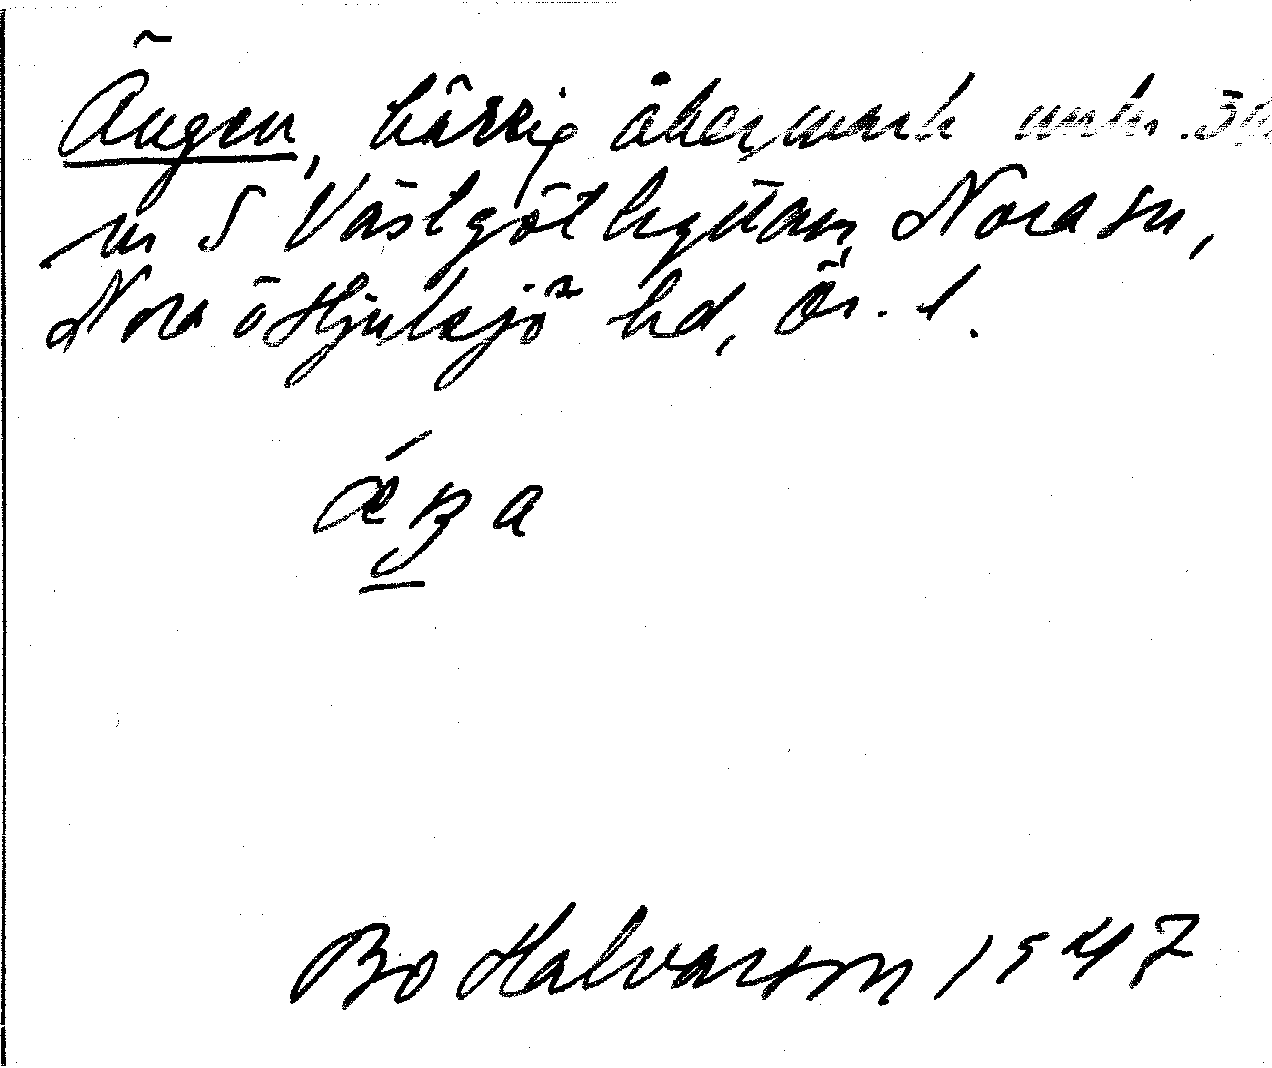 Ängen, bärrig åkermark omkr. 30
m S Västgöthyttan, Nora sn,
Nora ö Hjulsjö hd, Ör. l.
æŋa
Bo Halvarson 1947